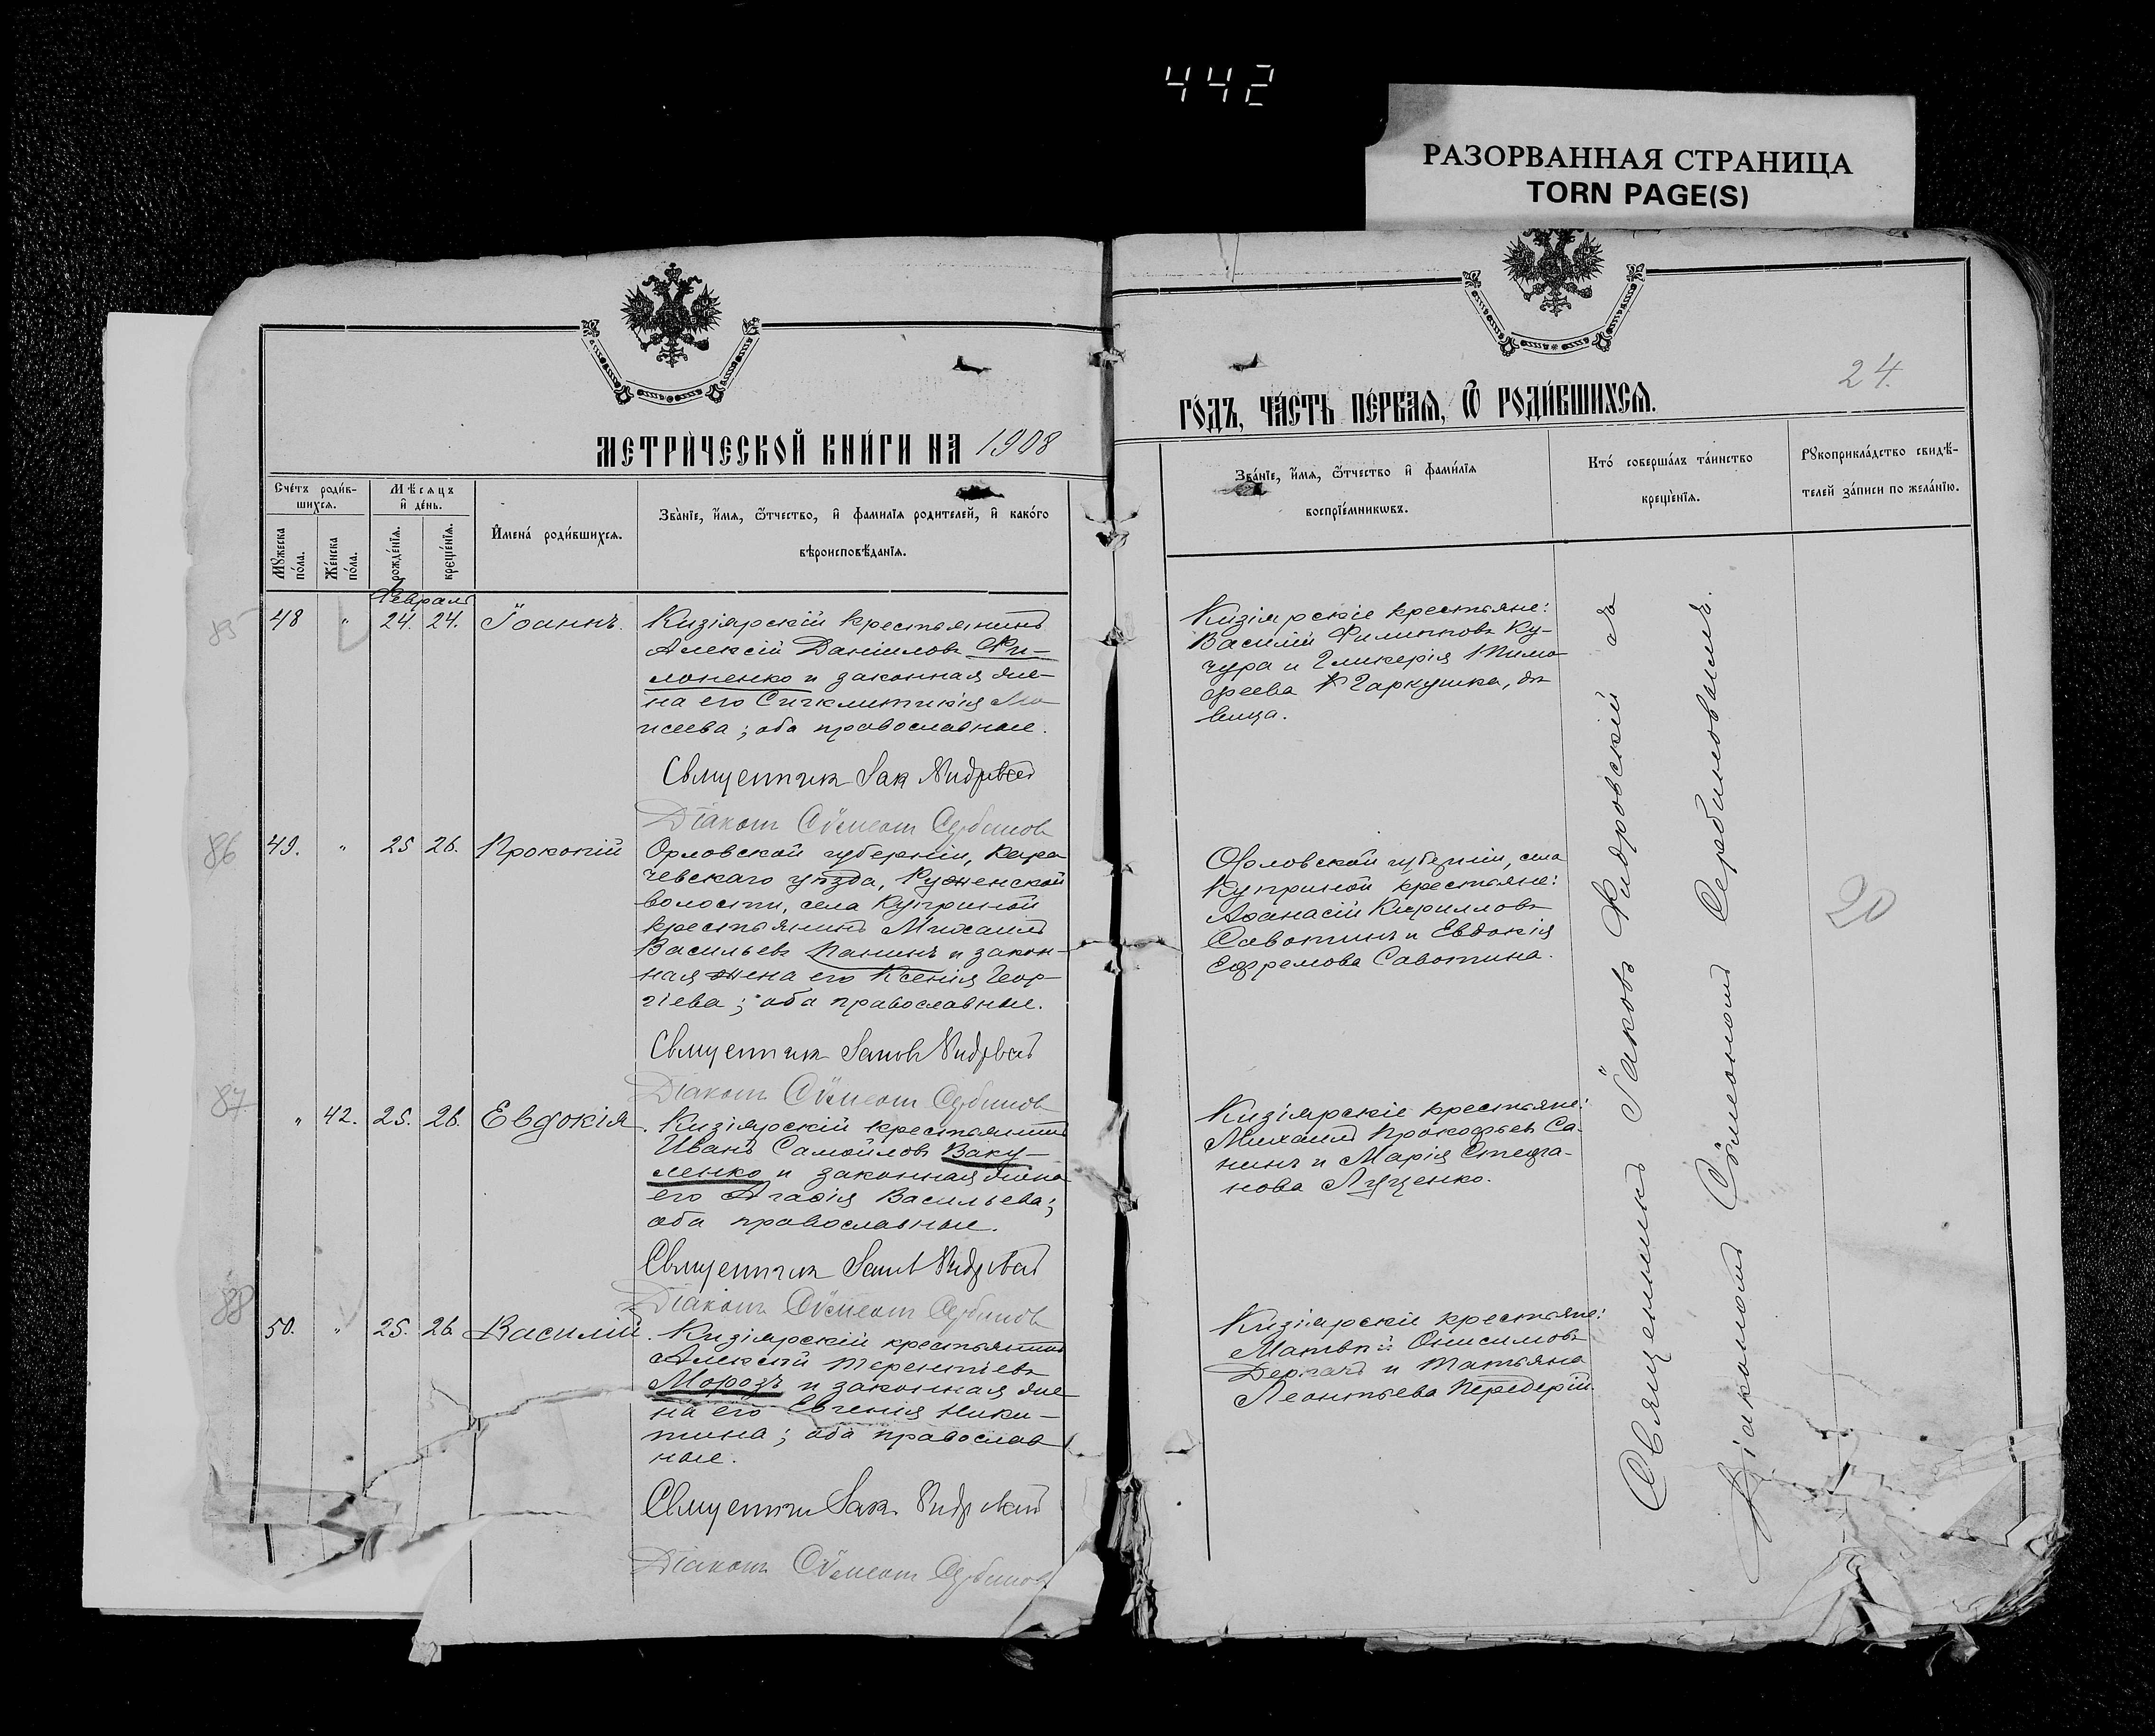 442
РАЗОРВАННАЯ СТРАНИЦА
TORN PAGE(S)
МЕТРИ́ЧЕСКОЙ КНИ́ГИ НА 1908
ГО́ДЪ, ЧА́СТЬ ПЕ́РВАЯ, Ѡ РОДИ́ВШИХСЯ.
24.
Сче́тъ роди́в-
шихся.
Мѣ́сяцъ
и҆ де́нь.
Му́жеска по́ла.
Же́нска по́ла.
рожде́нїя.
креще́нїя.
И҆мена́ роди́вшихся.
Зва́нїе, и҆́мя, ѻ҆́тчество, и҆ фами́лїя роди́телей, и҆ како́го
вѣроисповѣ́данїя.
Зва́нїе, и҆́мя, ѻ҆́тчество и҆ фами́лїя
воспрїе́мникѡвъ.
Кто́ соверша́лъ та́инство
креще́нїя.
Рꙋкоприкла́дство свидѣ́-
телей за́писи по жела́нїю.
Февраль
85
48 " 24. 24. Іоаннъ.
Кизіярскій крестьянинъ
Алексій Даніиловъ Фи-
лоненко и законная же-
на его Сигклитикія Мо
исеева; оба православные.
Священник Іак
Діаконъ Сѵмеонъ Сербиновъ
Кизіярскіе крестьяне:
Василій Филипповъ Ку-
чура и Гликерія Тимо
феева Гаркушка, дѣ
вица.
86
49. " 25 26. Прокопій
Орловской губерніи, Кара
чевскаго уѣзда, Руженской
волости, села Куприной
крестьянинъ Михаилъ
Васильевъ Панинъ и закон-
ная жена его Ксенія Геор
гіева; оба православные.
Священник Іаковъ
Діаконъ Сѵмеонъ Сербиновъ
Орловской губерніи, села
Куприной крестьяне:
Аѳанасій Кирилловъ
Савотинъ и Евдокія
Ефремова Савотина.
20
87
" 42. 25. 26. Евдокія.
Кизіярскій крестьянинъ
Иванъ Самойловъ Ваку-
ленко и законная жена
его Агаѳія Васильева;
оба православные.
Священник
Діаконъ Сѵмеонъ Сербиновъ
Кизіярскіе крестьяне:
Михаилъ Прокофьевъ Са-
нинъ и Марія Стефа-
нова Луценко.
88
50. " 25. 26. Василій.
Кизіярскій крестьянинъ
Алексій Терентіевъ
Морозъ и законная же
на его Евгенія Ники-
тина; оба православ
ные.
Священник Іак.
Діаконъ Сѵмеонъ Сербиновъ
Кизіярскіе крестьяне:
Матвѣй Онисимовъ
Дергачъ и Татьяна
Леонтьева Передерій.
Священникъ Іаковъ съ
Діакономъ Сѵмеономъ Сербиновымъ.